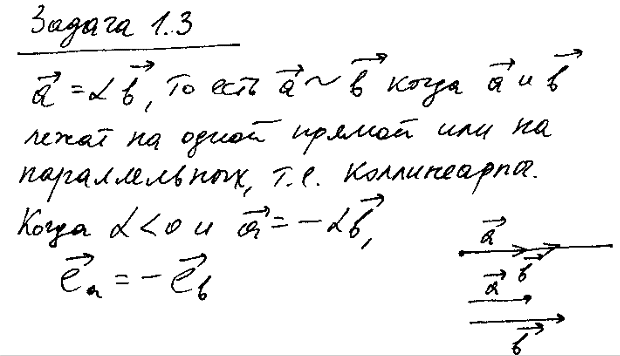 Задача 1.3
a⃗ = αb⃗, то есть a⃗ ~ b⃗ когда a⃗ и b⃗
лежат на одной прямой или на
параллельных, т.е. коллинеарны.
Когда α < 0 и a⃗ = −αb⃗,
e⃗ₐ = −e⃗b
a⃗
b⃗
a⃗
b⃗